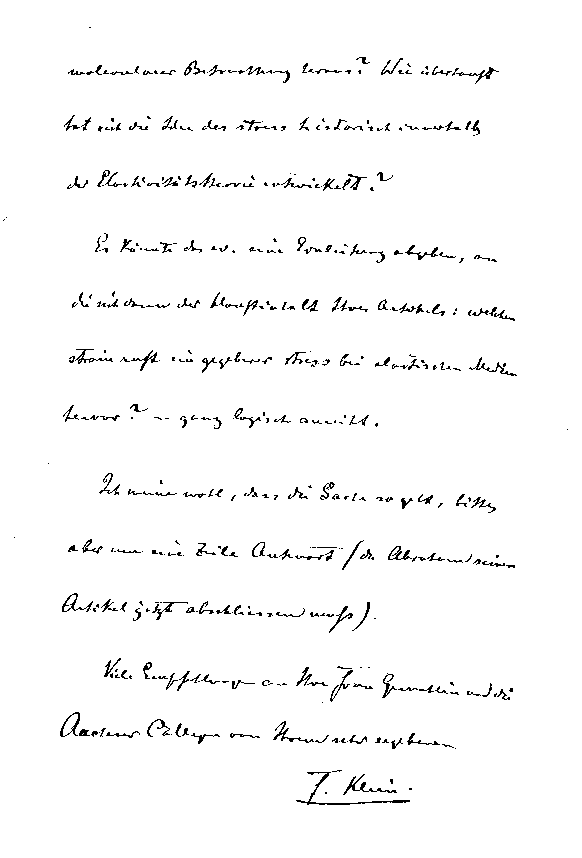 molecularer Betrachtung heraus? Wie überhaupt
hat sich die Idee des stress historisch innerhalb
der Elasticitätstheorie entwickelt?
Es könnte das ev. eine Einleitung abgeben, an
die sich dann der Hauptinhalt Ihres Artikels: welchen
strain ruft ein gegebener stress bei elastischen Medien
hervor? – ganz logisch anreiht.
Ich meine wohl, dass die Sache so geht, bitte
aber um eine Zeile Antwort (da Abraham seinen
Artikel jetzt abschliessen muss).
Viele Empfehlungen an Ihre Frau Gemahlin und die
Aachener Collegen von Ihrem sehr ergebenen
F. Klein.